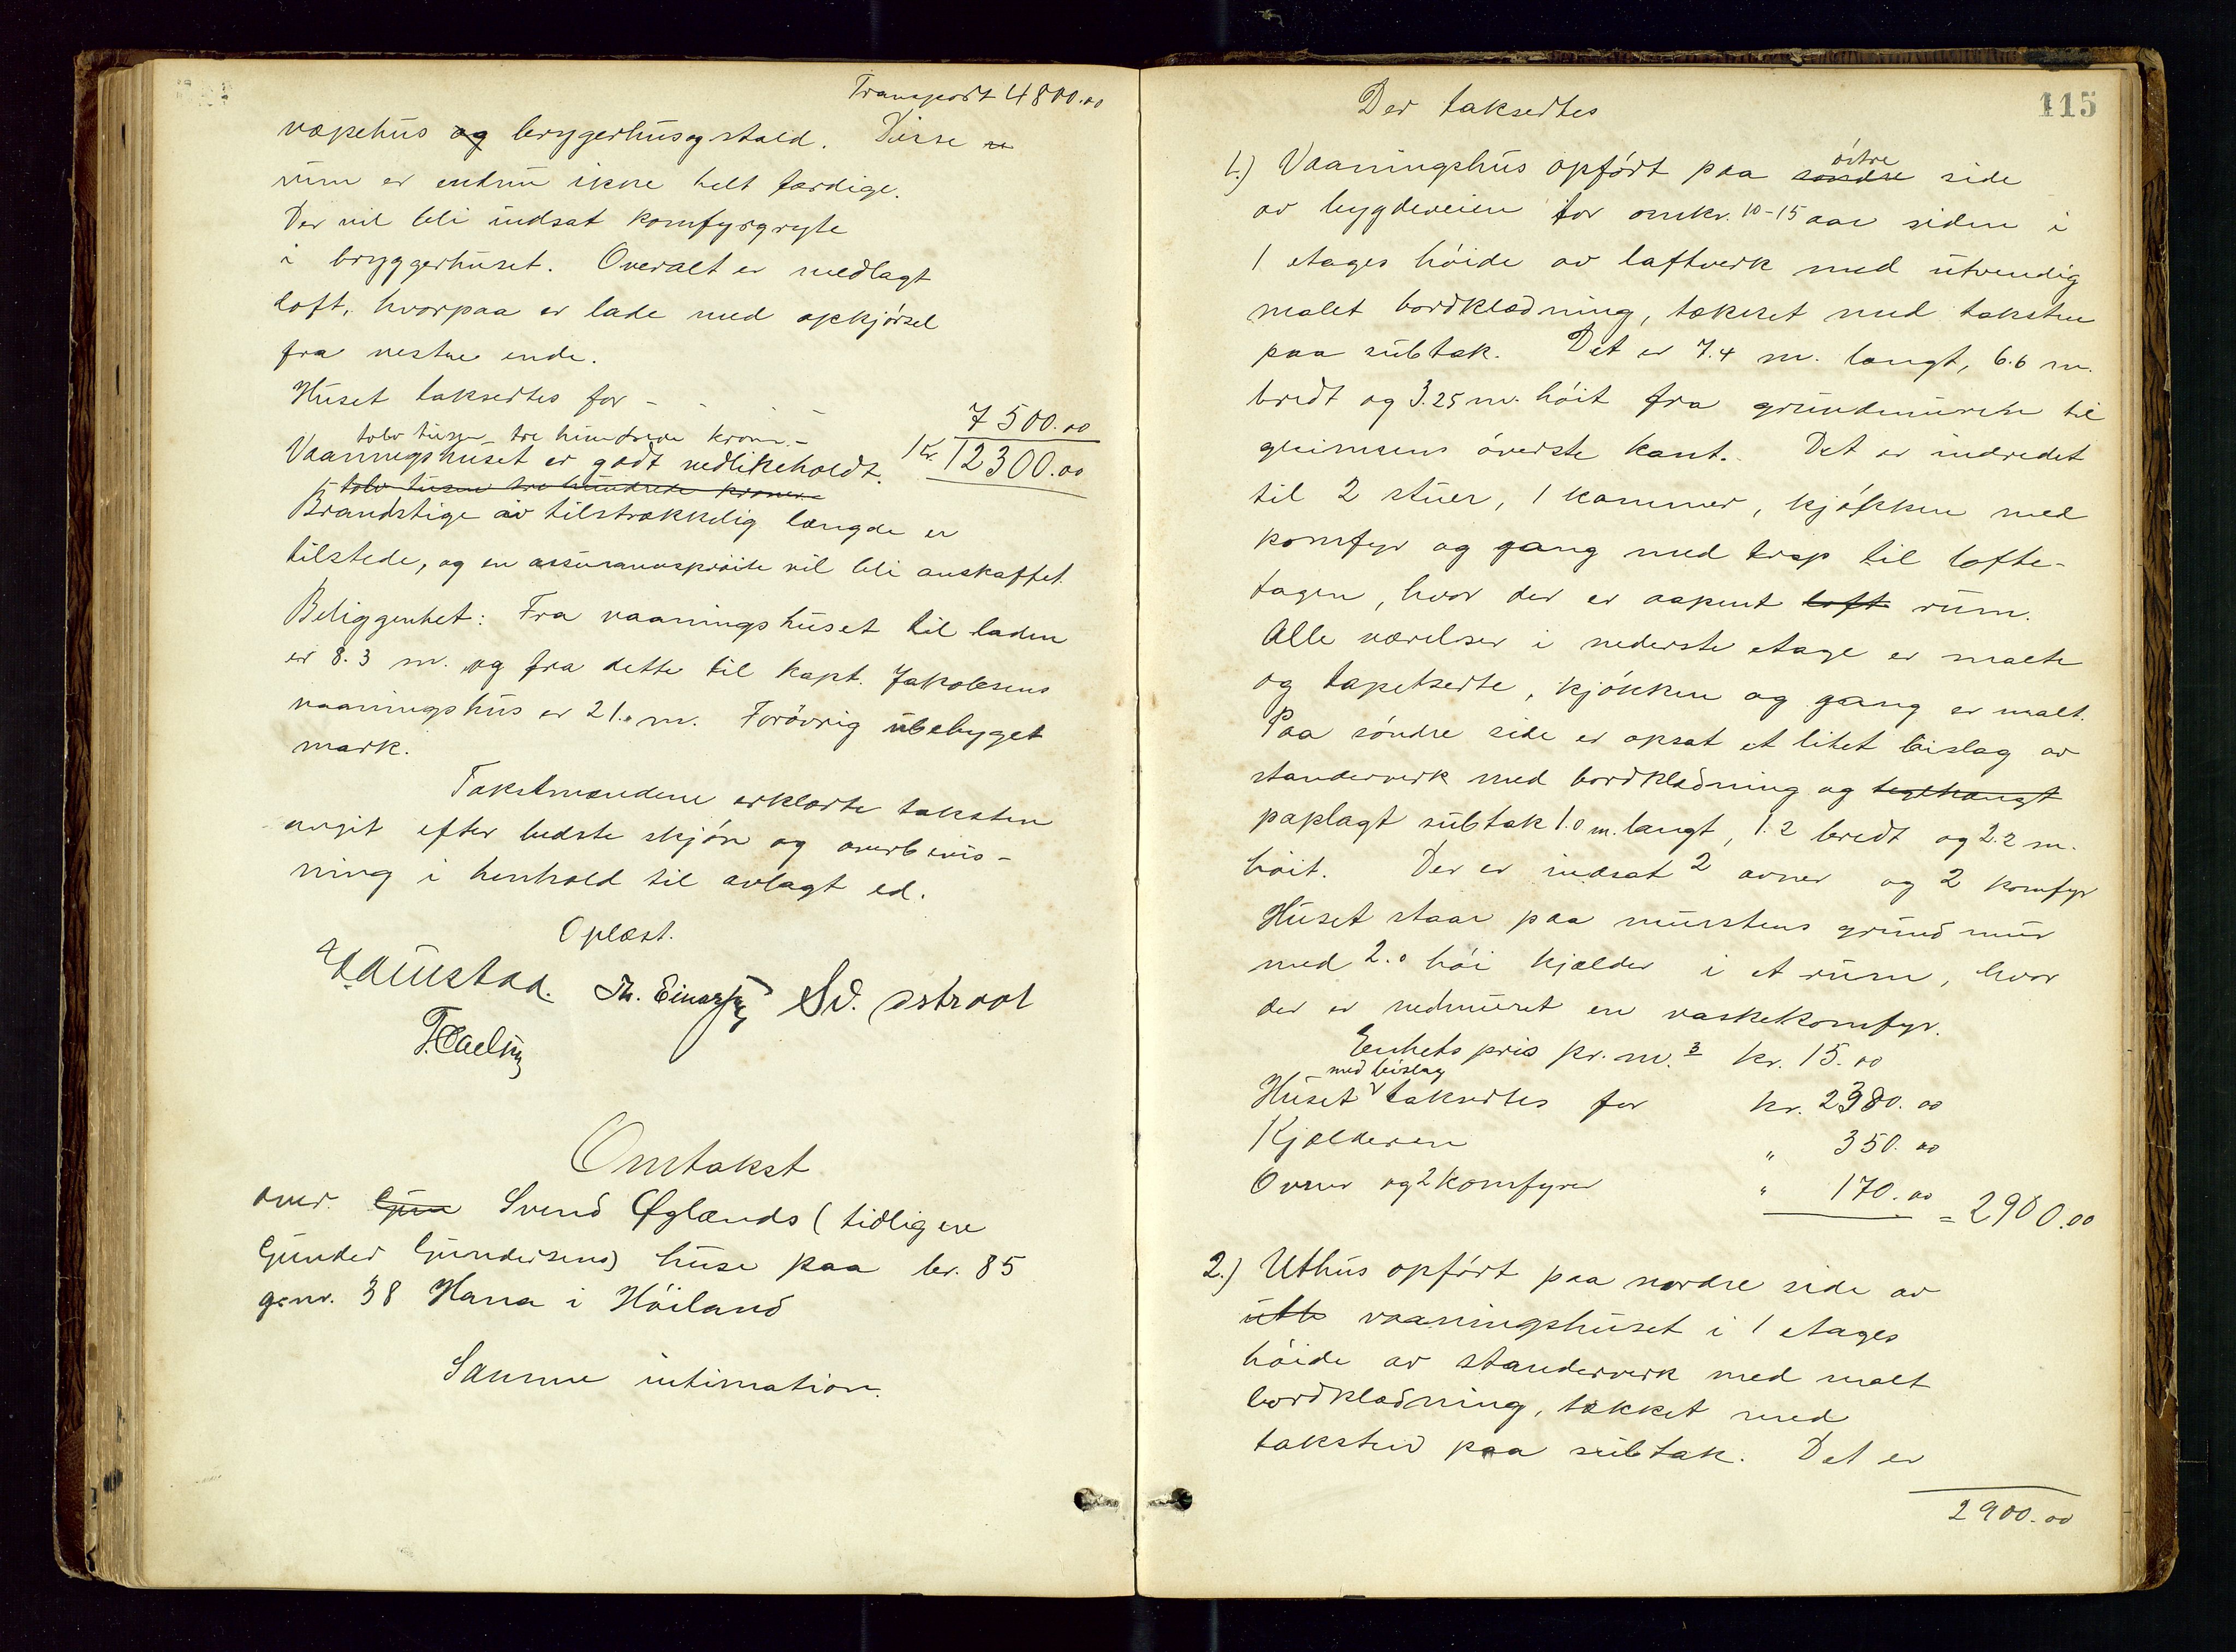 Transport 4800.00
væpehus og bryggerhus og stald. Disse
rum er endnu ikke helt færdige.
Der vil bli indsat komfyrgryte
i bryggerhuset. Overalt er nedlagt
loft, hvorpaa er lade med opkjørsel
fra vestre ende.
Huset taksertes for - - - 7500.00
tolv tusen tre hundrede kroner - Kr. 12300.00
Vaaningshuset er godt vedlikeholdt.
tolv tusen tre hundrede kroner
Brandstige av tilstrækkelig længde er
tilstede, og en assurancesprøite vil bli anskaffet.
Beliggenhet: Fra vaaningshuset til laden
er 8.3 m. og fra dette til kapt. Jakobsens
vaaningshus er 21.0 m. Forøvrig ubebygget
mark.
Takstmændene erklærte taksten
avgit efter bedste skjøn og overbevis-
ning i henhold til avlagt ed.
Oplæst.
Th. Einarsen Sv. Østraat
Omtakst
over Gun Svend Øglænds (tidligere
Gunder Gundersens) huse paa br. 85
g.nr. 38 Hana i Høiland
Samme intimation.
115
Der taksertes
1.) Vaaningshus opført paa søndre østre side
av bygdeveien for omkr. 10-15 aar siden i
1 etages høide av laftverk med utvendig
malet bordklædning, tækket med taksten
paa subtak. Det er 7.4 m. langt, 6.6 m.
bredt og 3.25 m. høit fra grundmuren til
gesimsens øverste kant. Det er indredet
til 2 stuer, 1 kammer, kjøkken med
komfyr og gang med trap til lofte-
tagen, hvor der er aapent loft rum.
Alle værelser i nederste etage er malte
og tapetserte, kjøkken og gang er malt.
Paa søndre side er opsat et litet bislag av
standerverk med bordklædning og teglhængt
paplagt subtak 1.0 m. langt, 1.2 bredt og 2.2 m.
høit. Der er indsat 2 ovner og 2 komfyr
Huset staar paa murstens grundmur
med 2.0 høi kjælder i et rum, hvor
der er nedmuret en vaskekomfyr.
Enhets pris pr. m.3 kr. 15.00
med bislag
Huset takseres for kr. 2380.00
Kjælderen " 350.00
Ovner og 2 komfyrer " 170.00 = 2900.00
2.) Uthus opført paa nordre side av
uth vaaningshuset i 1 etages
høide av standerverk med malt
bordklædning, tækket med
taksten paa subtak. Det er
2900.00